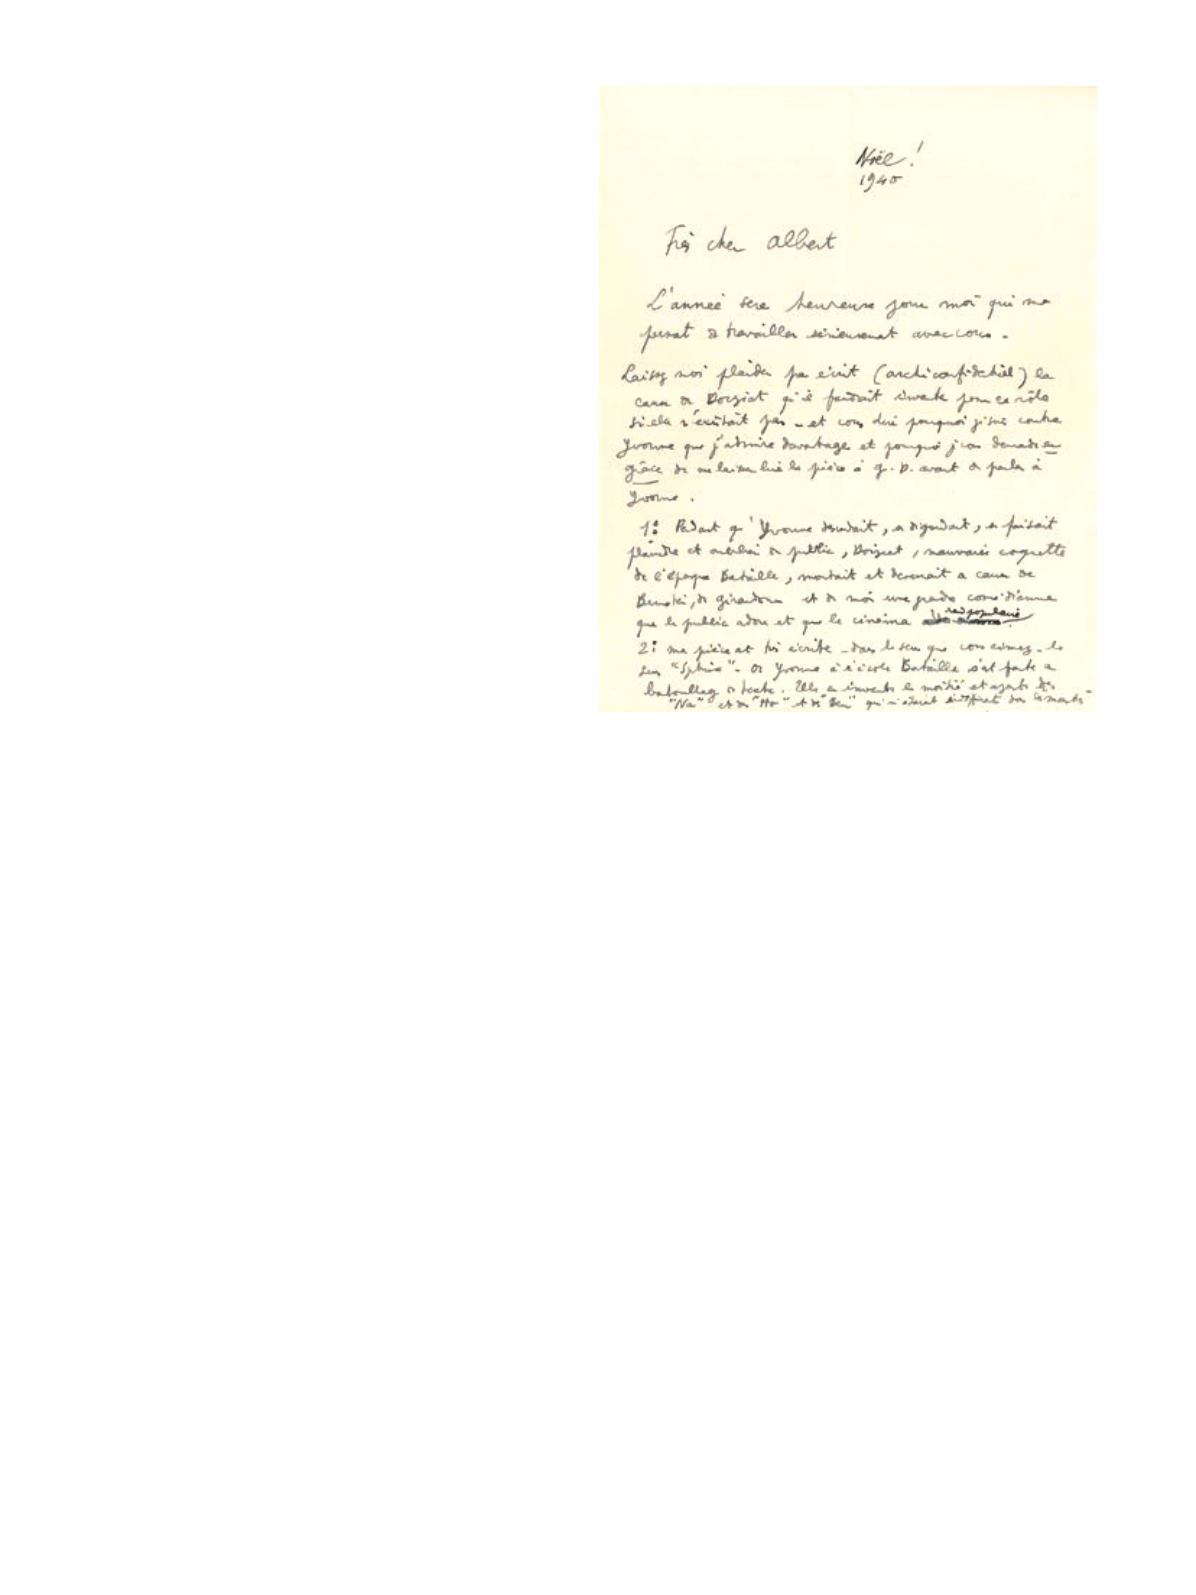 Noël !
1940
Très cher Albert
L'année sera heureuse pour moi qui me
permet de travailler sérieusement avec vous.
Laissez moi plaider par écrit (archiconfidentiel) la
cause de Dorziat qu'il faudrait inventer pour ce rôle
si elle n'existait pas - et vous dire pourquoi je suis contre
Yvonne que j'admire davantage et pourquoi je vous demande en
grâce de me laisser lire la pièce à G. D. avant de parler à
Yvonne.
1: Pendant qu'Yvonne descendait, se faisait
plaindre et oublier du public, Dorziat, mauvaise coquette
de l'époque Bataille, montait et devenait à cause de
Bernstein, de Giraudoux et de moi une grande comédienne
que le public adore et que le cinéma rend populaire
2: ma pièce est très écrite - dans le sens que vous aimez - le
sens "Sphinx" - Or Yvonne à l'école Bataille s'est faite au
bafouillage de texte. Elle en invente la moitié et ajoute des
"Na" et des "Ho" et de "Ben" qui